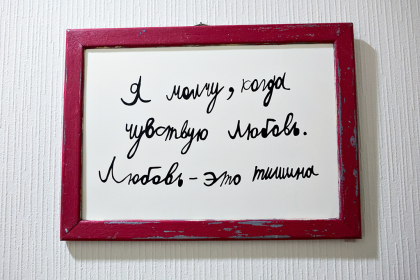 Я молчу, когда
чувствую Любовь.
Любовь - это тишина